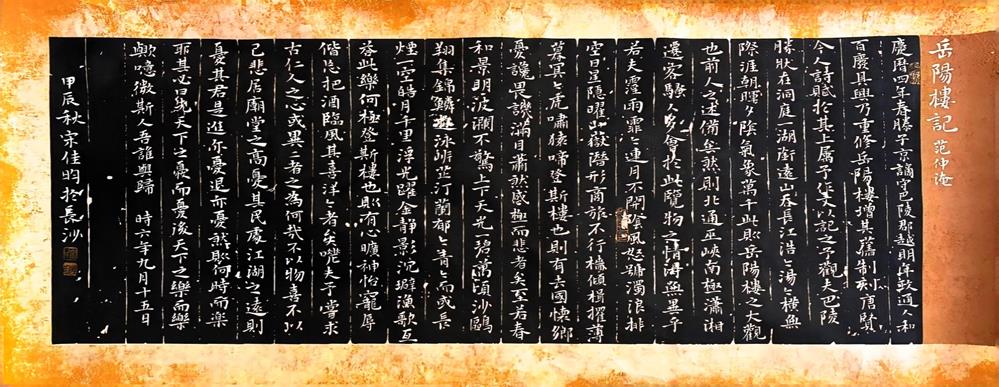 岳陽樓記 范仲淹
慶曆四年春滕子京謫守巴陵郡越明年政通人和
百廢具興乃重修岳陽樓增其舊制刻唐賢
今人詩賦於其上属予作文以記之予觀夫巴陵
勝狀在洞庭一湖銜遠山吞長江浩〻湯〻橫無
際涯朝暉夕陰氣象萬千此則岳陽樓之大觀
也前人之述備矣然則北通巫峽南極瀟湘
遷客騷人多會於此覽物之情得無異乎
若夫霪雨霏〻連月不開陰風怒號濁浪排
空日星隱曜山嶽潛形商旅不行檣傾楫摧薄
暮冥〻虎嘯猿啼登斯樓也則有去國懷鄉
憂讒畏譏滿目蕭然感極而悲者矣至若春
和景明波瀾不驚上下天光一碧萬頃沙鷗
翔集錦鱗遊泳岸芷汀蘭郁〻青〻而或長
煙一空皓月千里浮光躍金静影沉璧漁歌互
答此樂何極登斯樓也則有心曠神怡寵辱
偕忘把酒臨風其喜洋〻者矣嗟夫予嘗求
古仁人之心或異二者之為何哉不以物喜不以
己悲居廟堂之高憂其民處江湖之遠則
憂其君是進亦憂退亦憂然則何時而樂
耶其必曰先天下之憂而憂後天下之樂而樂
歟噫微斯人吾誰與歸 時六年九月十五日
甲辰秋宋佳昀於長沙